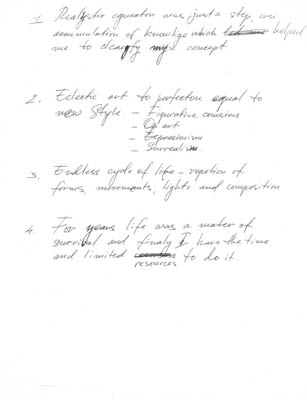 1. Realystic equration was just a step, an
accumulation of knowlige which helped
me to clearyfy my concept
2. Eclectic art to perfection equal to
new Style - Figurative consious
- Op art
- Expressionism
- Surrealism.
3. Endless cycle of life - repetion of
forms, movements, lights and composition
4. For years life was a mater of
survival and finaly I have the time
and limited resources to do it.